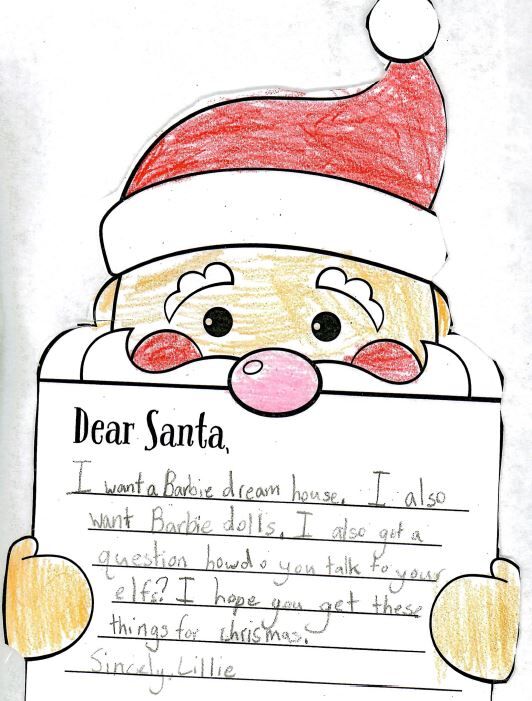 Dear Santa,
I want a Barbie dream house. I also
want Barbie dolls. I also got a
question how do you talk to your
elfs? I hope you get these
things for chrismas.
Sincely, Lillie